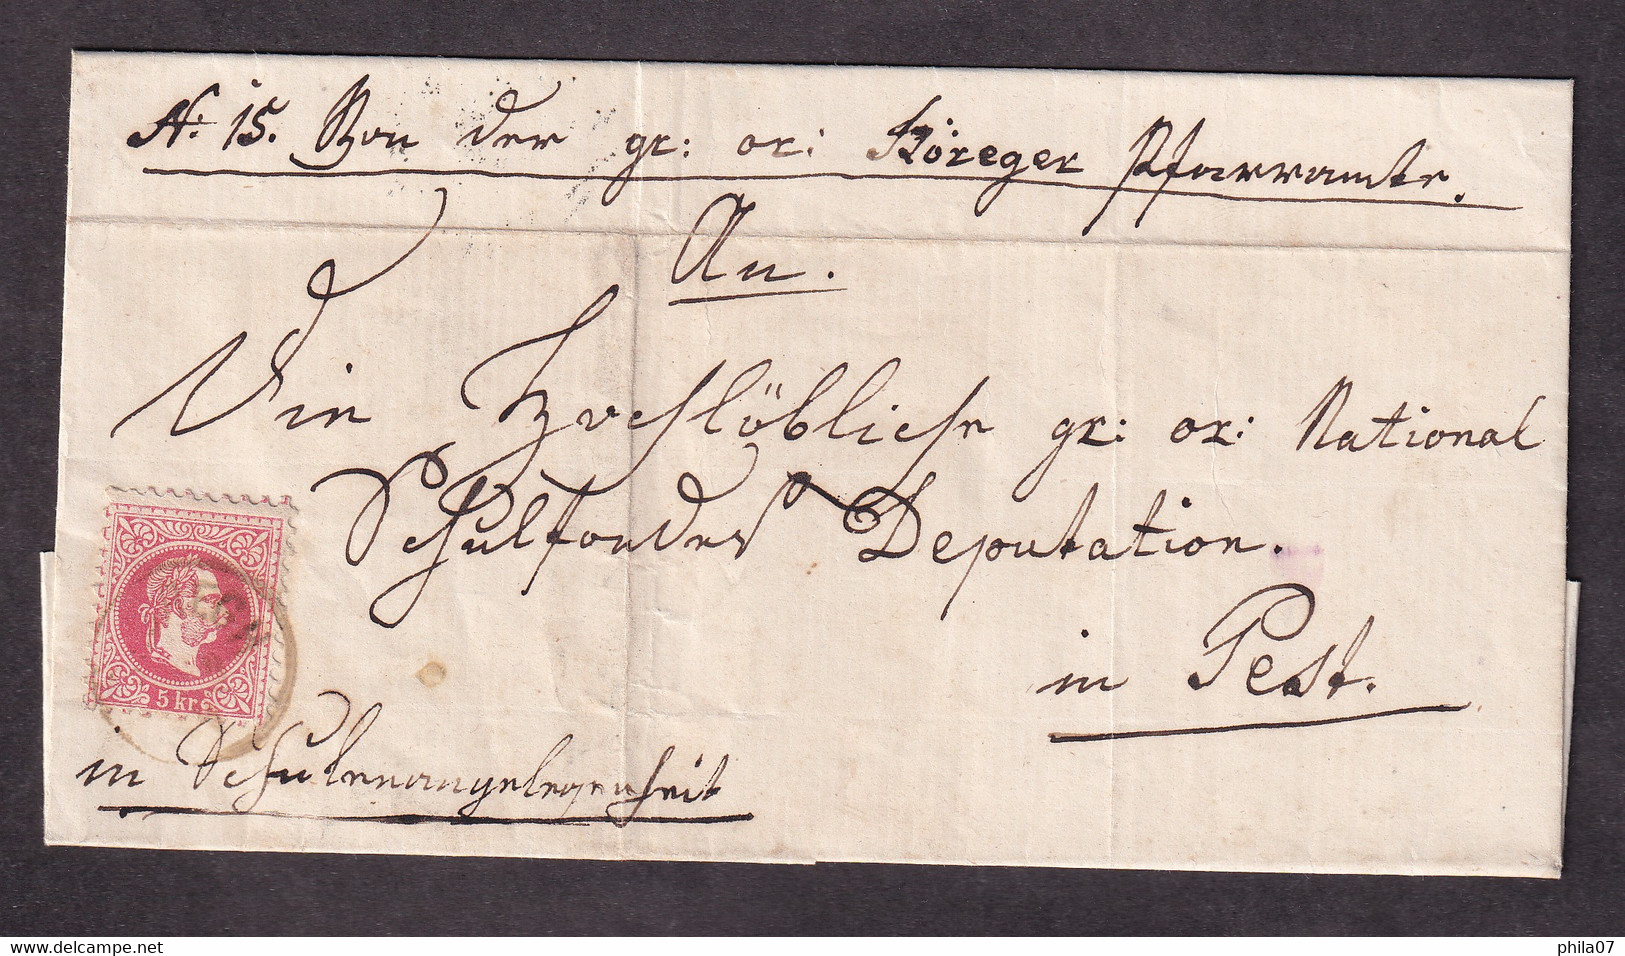 N: 15. Von der gr: or: Szöreger Pfarramte.
An.
Ein Hochlöbliche gr: or: National
Schulfondes Deputation.
in Pest.
5 kr.
in Schulenangelegenheit
phila07